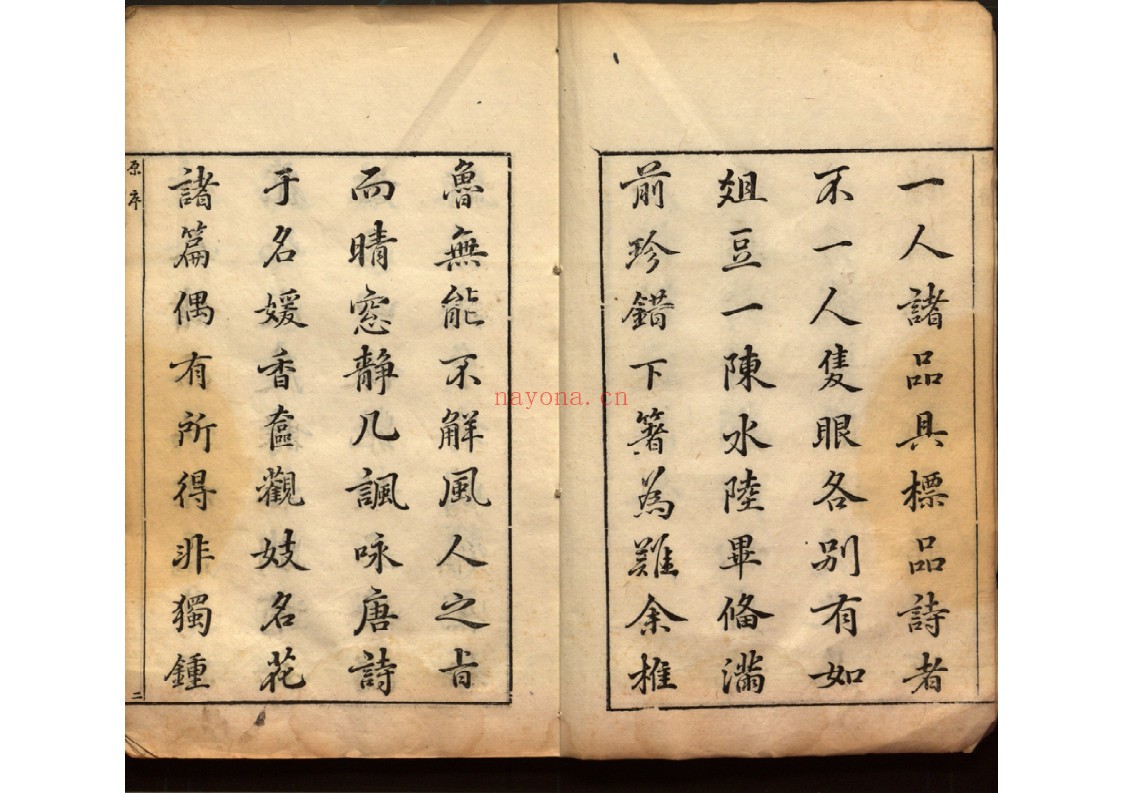 一人諸品具標品詩者
不一人隻眼各別有如
俎豆一陳水陸畢俻滿
前珍錯下箸為難余椎
魯無能不解風人之旨
而晴窓静几諷咏唐詩
于名媛香奩觀妓名花
諸篇偶有所得非獨鍾
原序
二
nayona.cn